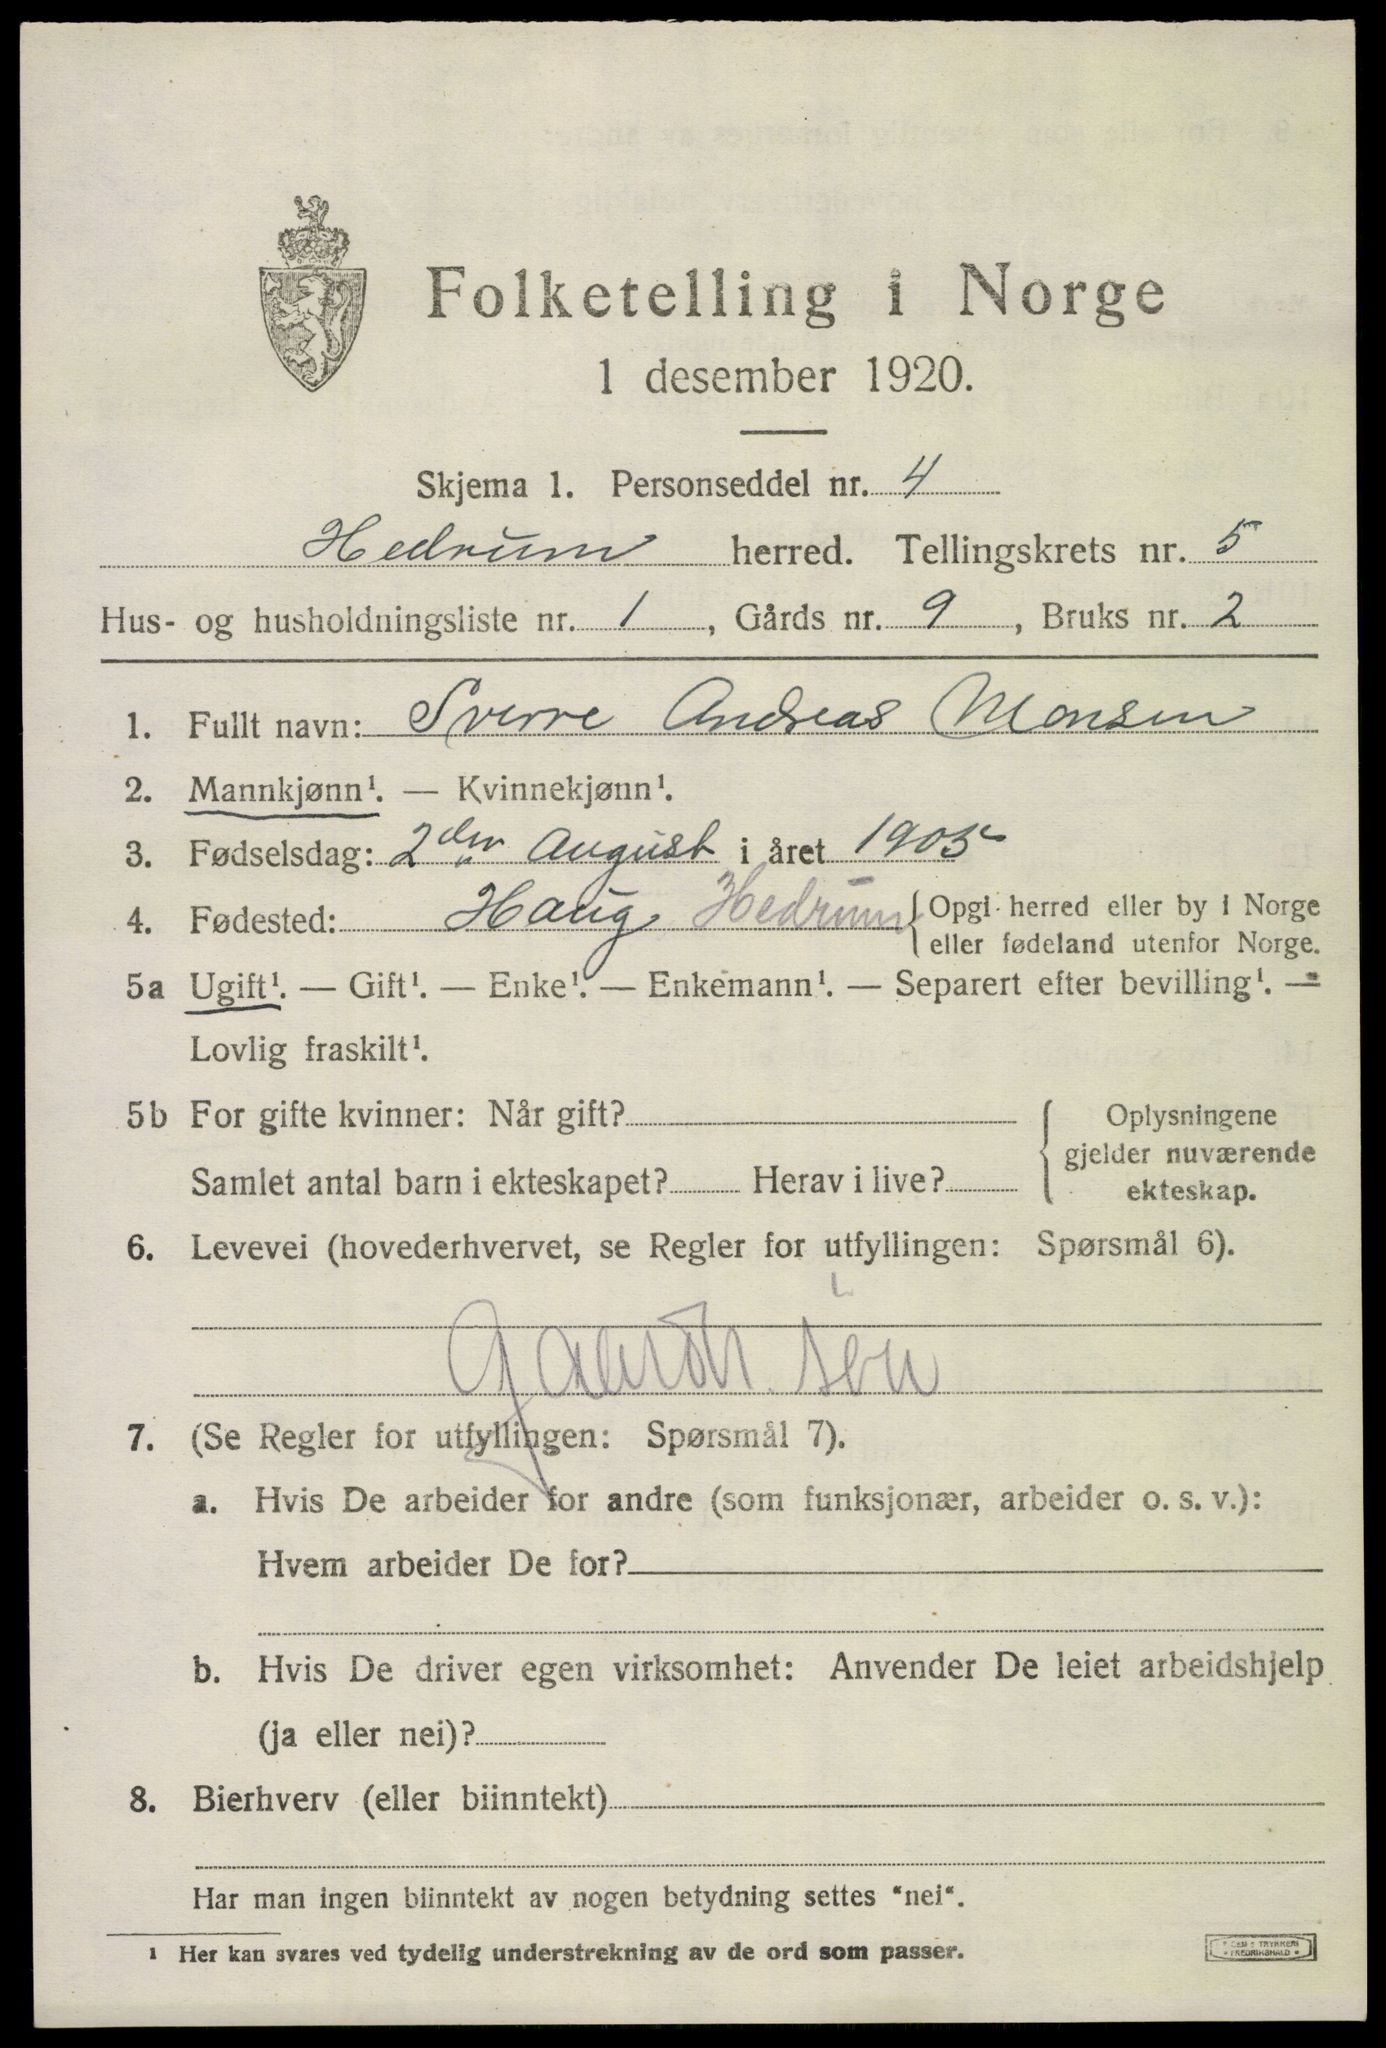 Folketelling i Norge
1 desember 1920.
Skjema 1. Personseddel nr. 4
Hedrum herred. Tellingskrets nr. 5
Hus- og husholdningsliste nr. 1, Gårds nr. 9, Bruks nr. 2
1. Fullt navn: Sverre Andreas Monsen
2. Mannkjønn¹. — Kvinnekjønn¹.
3. Fødselsdag: 2den August i året 1905
4. Fødested: Haug Hedrum {Opgi herred eller by i Norge
eller fødeland utenfor Norge.
5a Ugift¹. — Gift¹. — Enke¹. — Enkemann¹. — Separert efter bevilling¹. —
Lovlig fraskilt¹.
5b For gifte kvinner: Når gift?
Samlet antal barn i ekteskapet? Herav i live?
Oplysningene
gjelder nuværende
ekteskap.
6. Levevei (hovederhvervet, se Regler for utfyllingen: Spørsmål 6).
søn
7. (Se Regler for utfyllingen: Spørsmål 7).
a. Hvis De arbeider for andre (som funksjonær, arbeider o. s. v.):
Hvem arbeider De for?
b. Hvis De driver egen virksomhet: Anvender De leiet arbeidshjelp
(ja eller nei)?
8. Bierhverv (eller biinntekt)
Har man ingen biinntekt av nogen betydning settes "nei".
¹ Her kan svares ved tydelig understrekning av de ord som passer.
TRYKKERI
FREDRIKSHALD